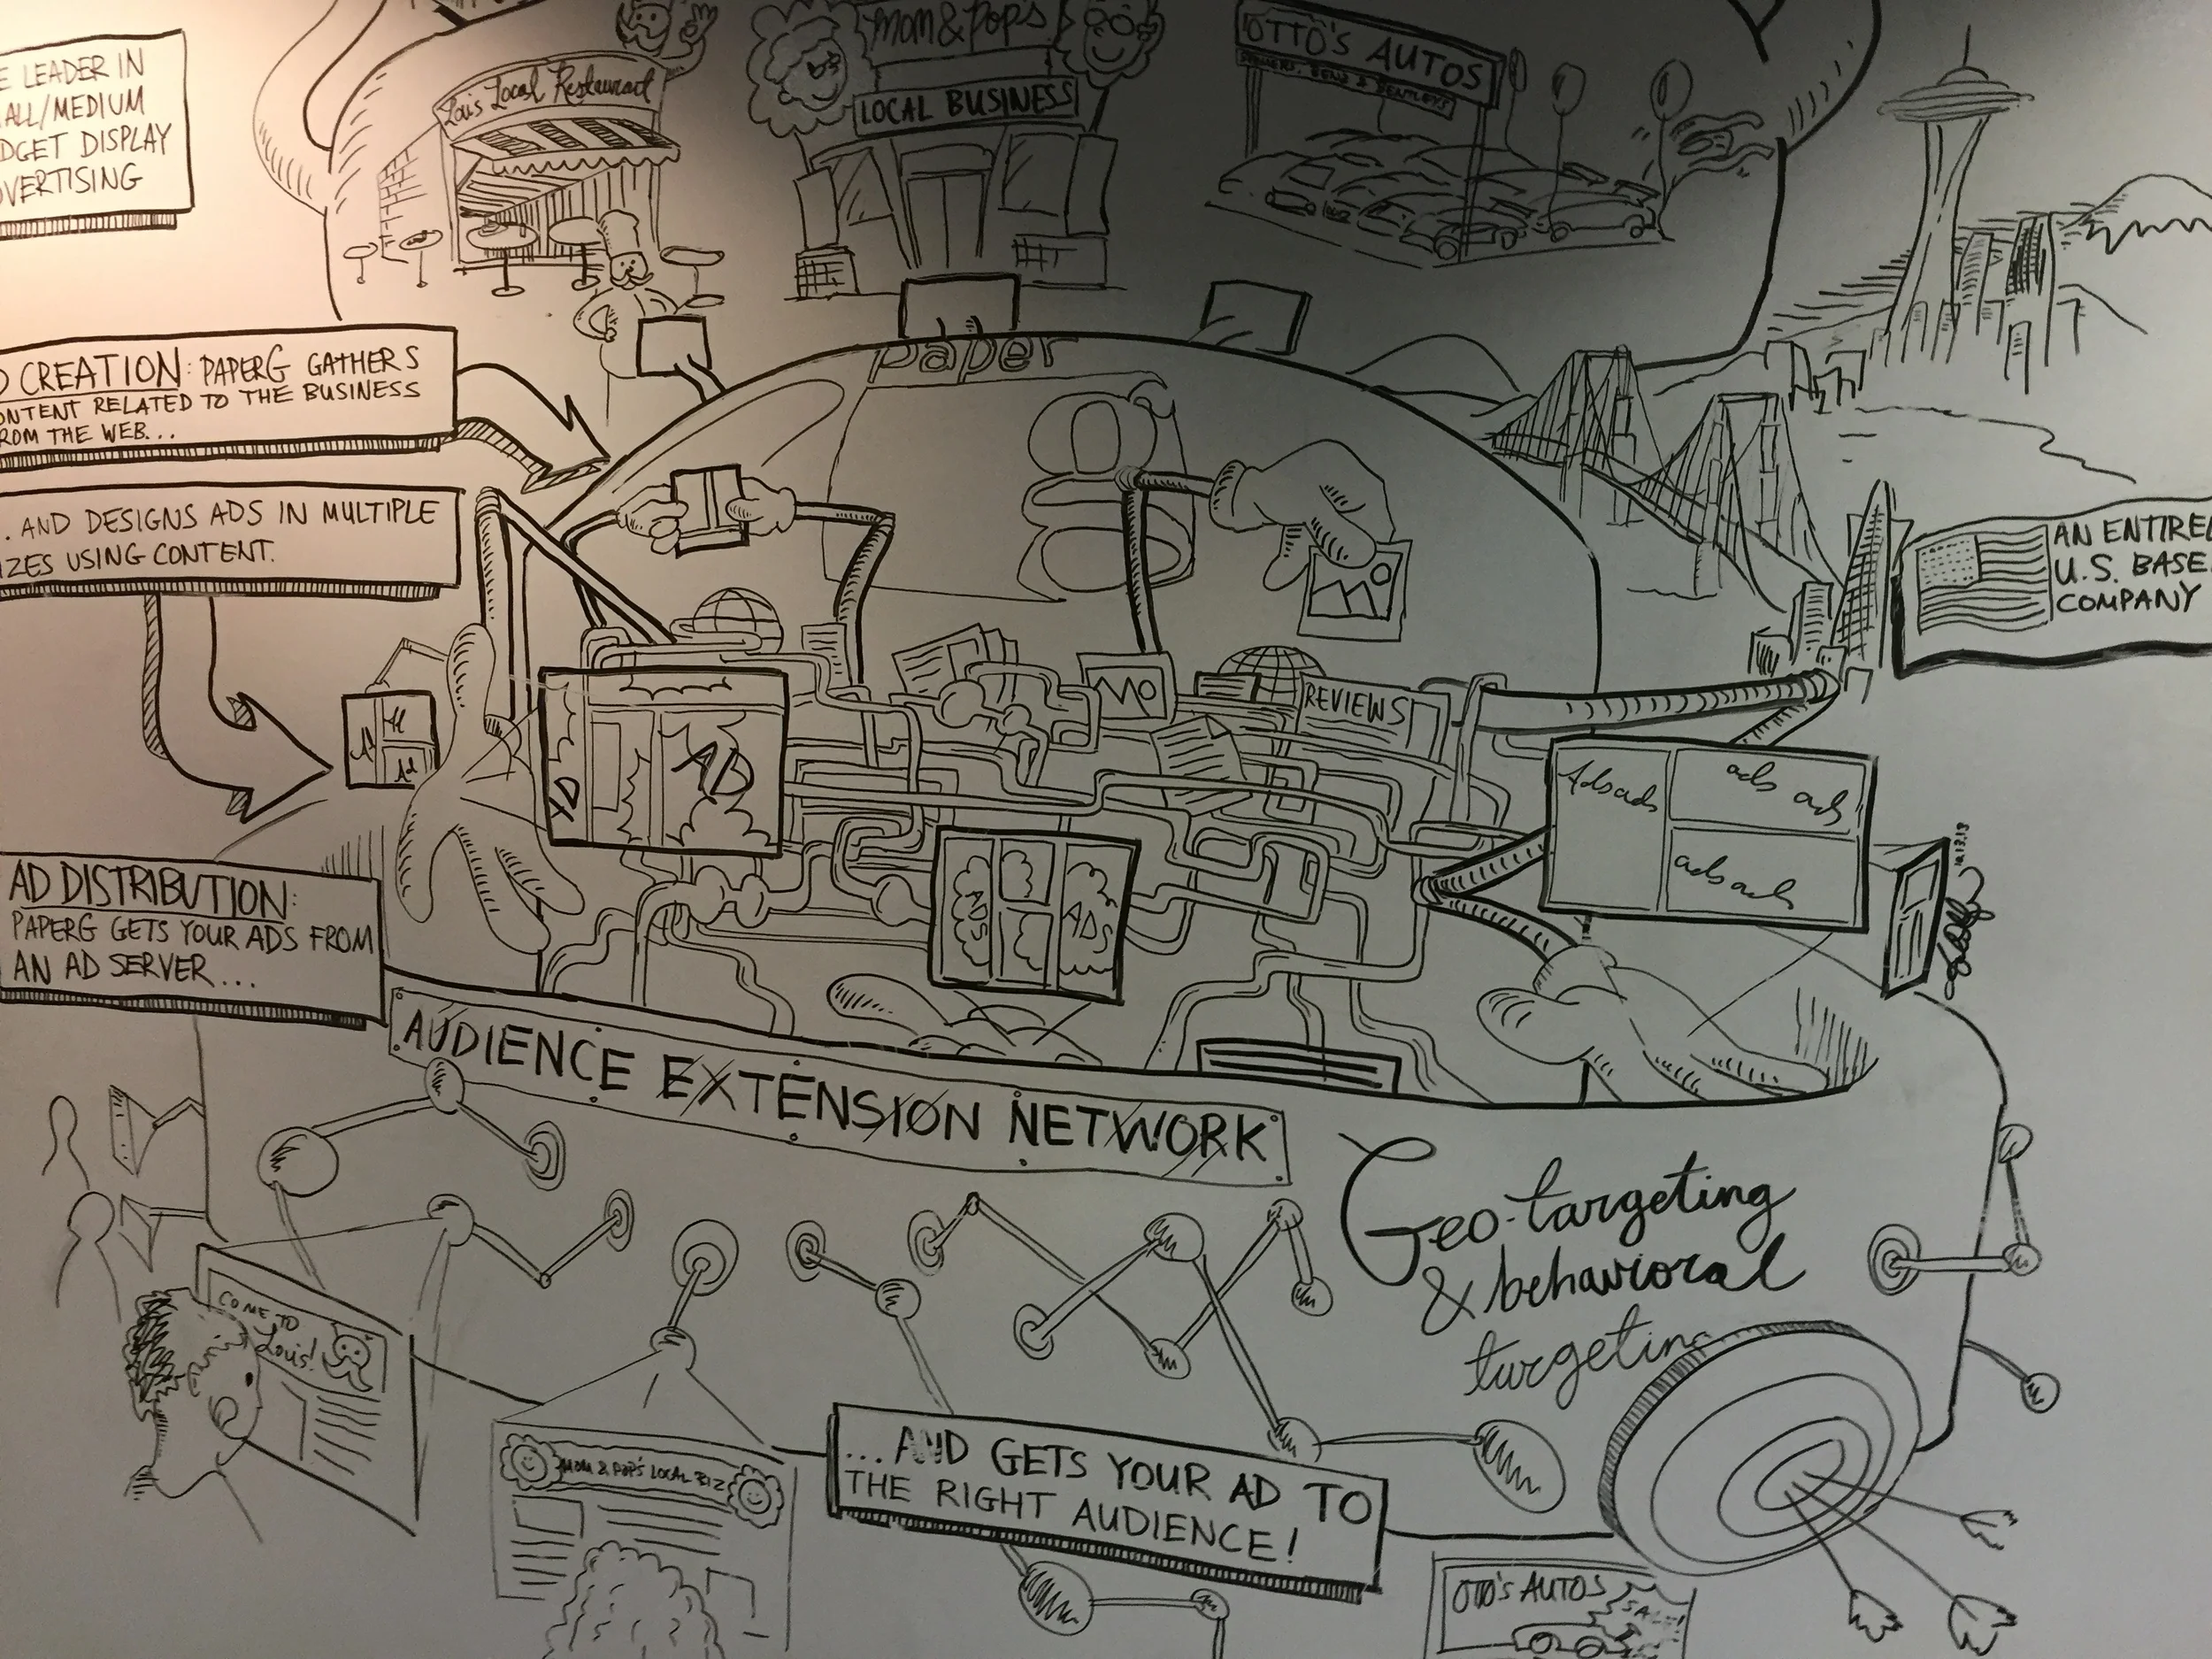 E LEADER IN
ALL/MEDIUM
DGET DISPLAY
VERTISING
Loui's Local Restaurant
mom & Pop's
LOCAL BUSINESS
OTTO'S AUTOS
BENZ & BENTLEYS
D CREATION: PAPERG GATHERS
ONTENT RELATED TO THE BUSINESS
ROM THE WEB...
paper
g
.. AND DESIGNS ADS IN MULTIPLE
IZES USING CONTENT.
AN ENTIREL
U.S. BASE
COMPANY
REVIEWS
Ad
AD
AD
ADS
ADS
Ads ads
ads ads
ads ads
10.13.13
AD DISTRIBUTION:
PAPERG GETS YOUR ADS FROM
AN AD SERVER...
AUDIENCE EXTENSION NETWORK
Geo-targeting
& behavioral
targeting
COME TO
Louis!
MOM & POP'S LOCAL BIZ
...AND GETS YOUR AD TO
THE RIGHT AUDIENCE!
OTTO'S AUTOS
SALE!